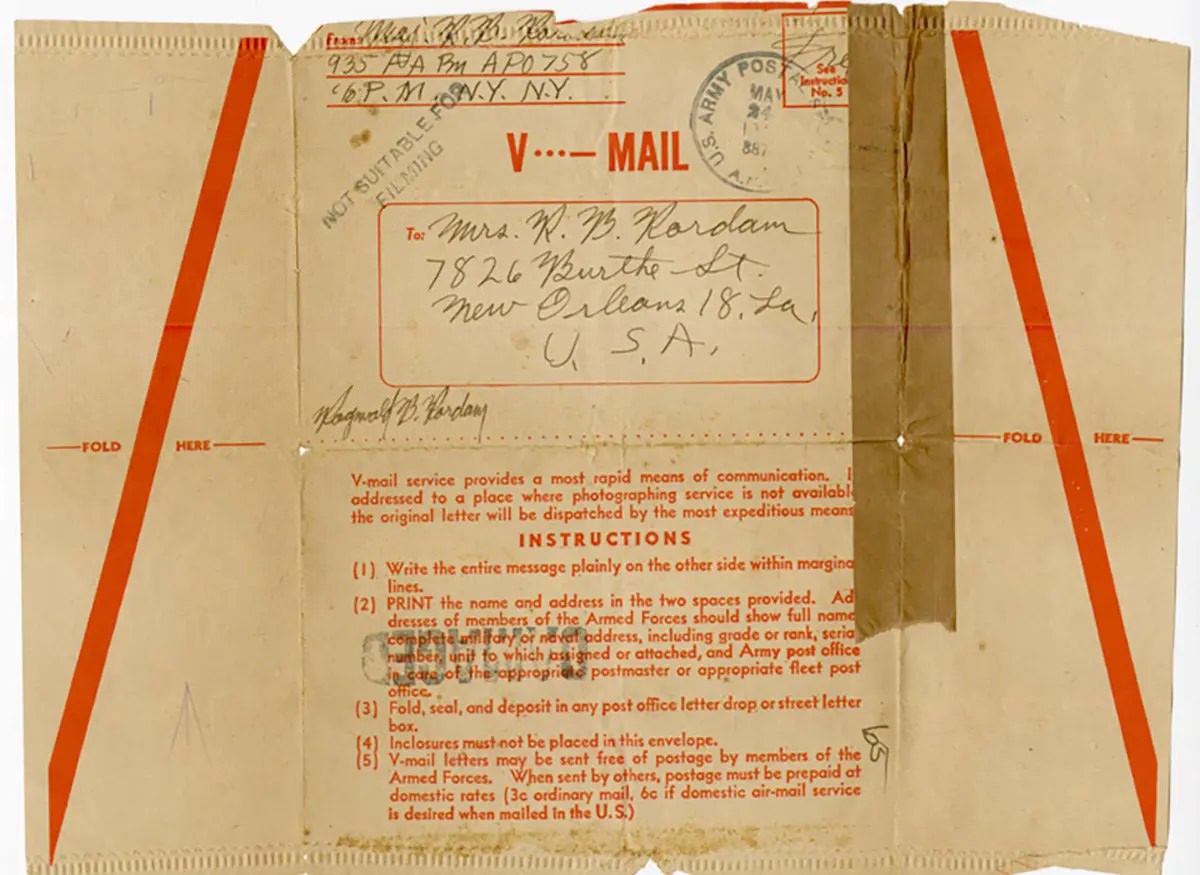 From: Maj. R. B. Rordam
935 FA Bn APO 758
℅ P.M. N.Y. N.Y.
Free
See
Instruction
No. 5
U.S. ARMY POSTAL
MAY
24
887
NOT SUITABLE FOR
FILMING
V···— MAIL
To: Mrs. R. B. Rordam
7826 Burthe St.
New Orleans 18, La.
U. S. A.
Ragnvald B. Rordam
FOLD HERE
FOLD HERE
V-mail service provides a most rapid means of communication. I
addressed to a place where photographing service is not availabl
the original letter will be dispatched by the most expeditious means
INSTRUCTIONS
(1) Write the entire message plainly on the other side within margina
lines.
(2) PRINT the name and address in the two spaces provided. Ad
dresses of members of the Armed Forces should show full name
complete military or naval address, including grade or rank, seria
number, unit to which assigned or attached, and Army post office
in care of the appropriate postmaster or appropriate fleet post
office.
DAMAGED
(3) Fold, seal, and deposit in any post office letter drop or street letter
box.
(4) Inclosures must not be placed in this envelope.
(5) V-mail letters may be sent free of postage by members of the
Armed Forces. When sent by others, postage must be prepaid at
domestic rates (3c ordinary mail, 6c if domestic air-mail service
is desired when mailed in the U.S.)